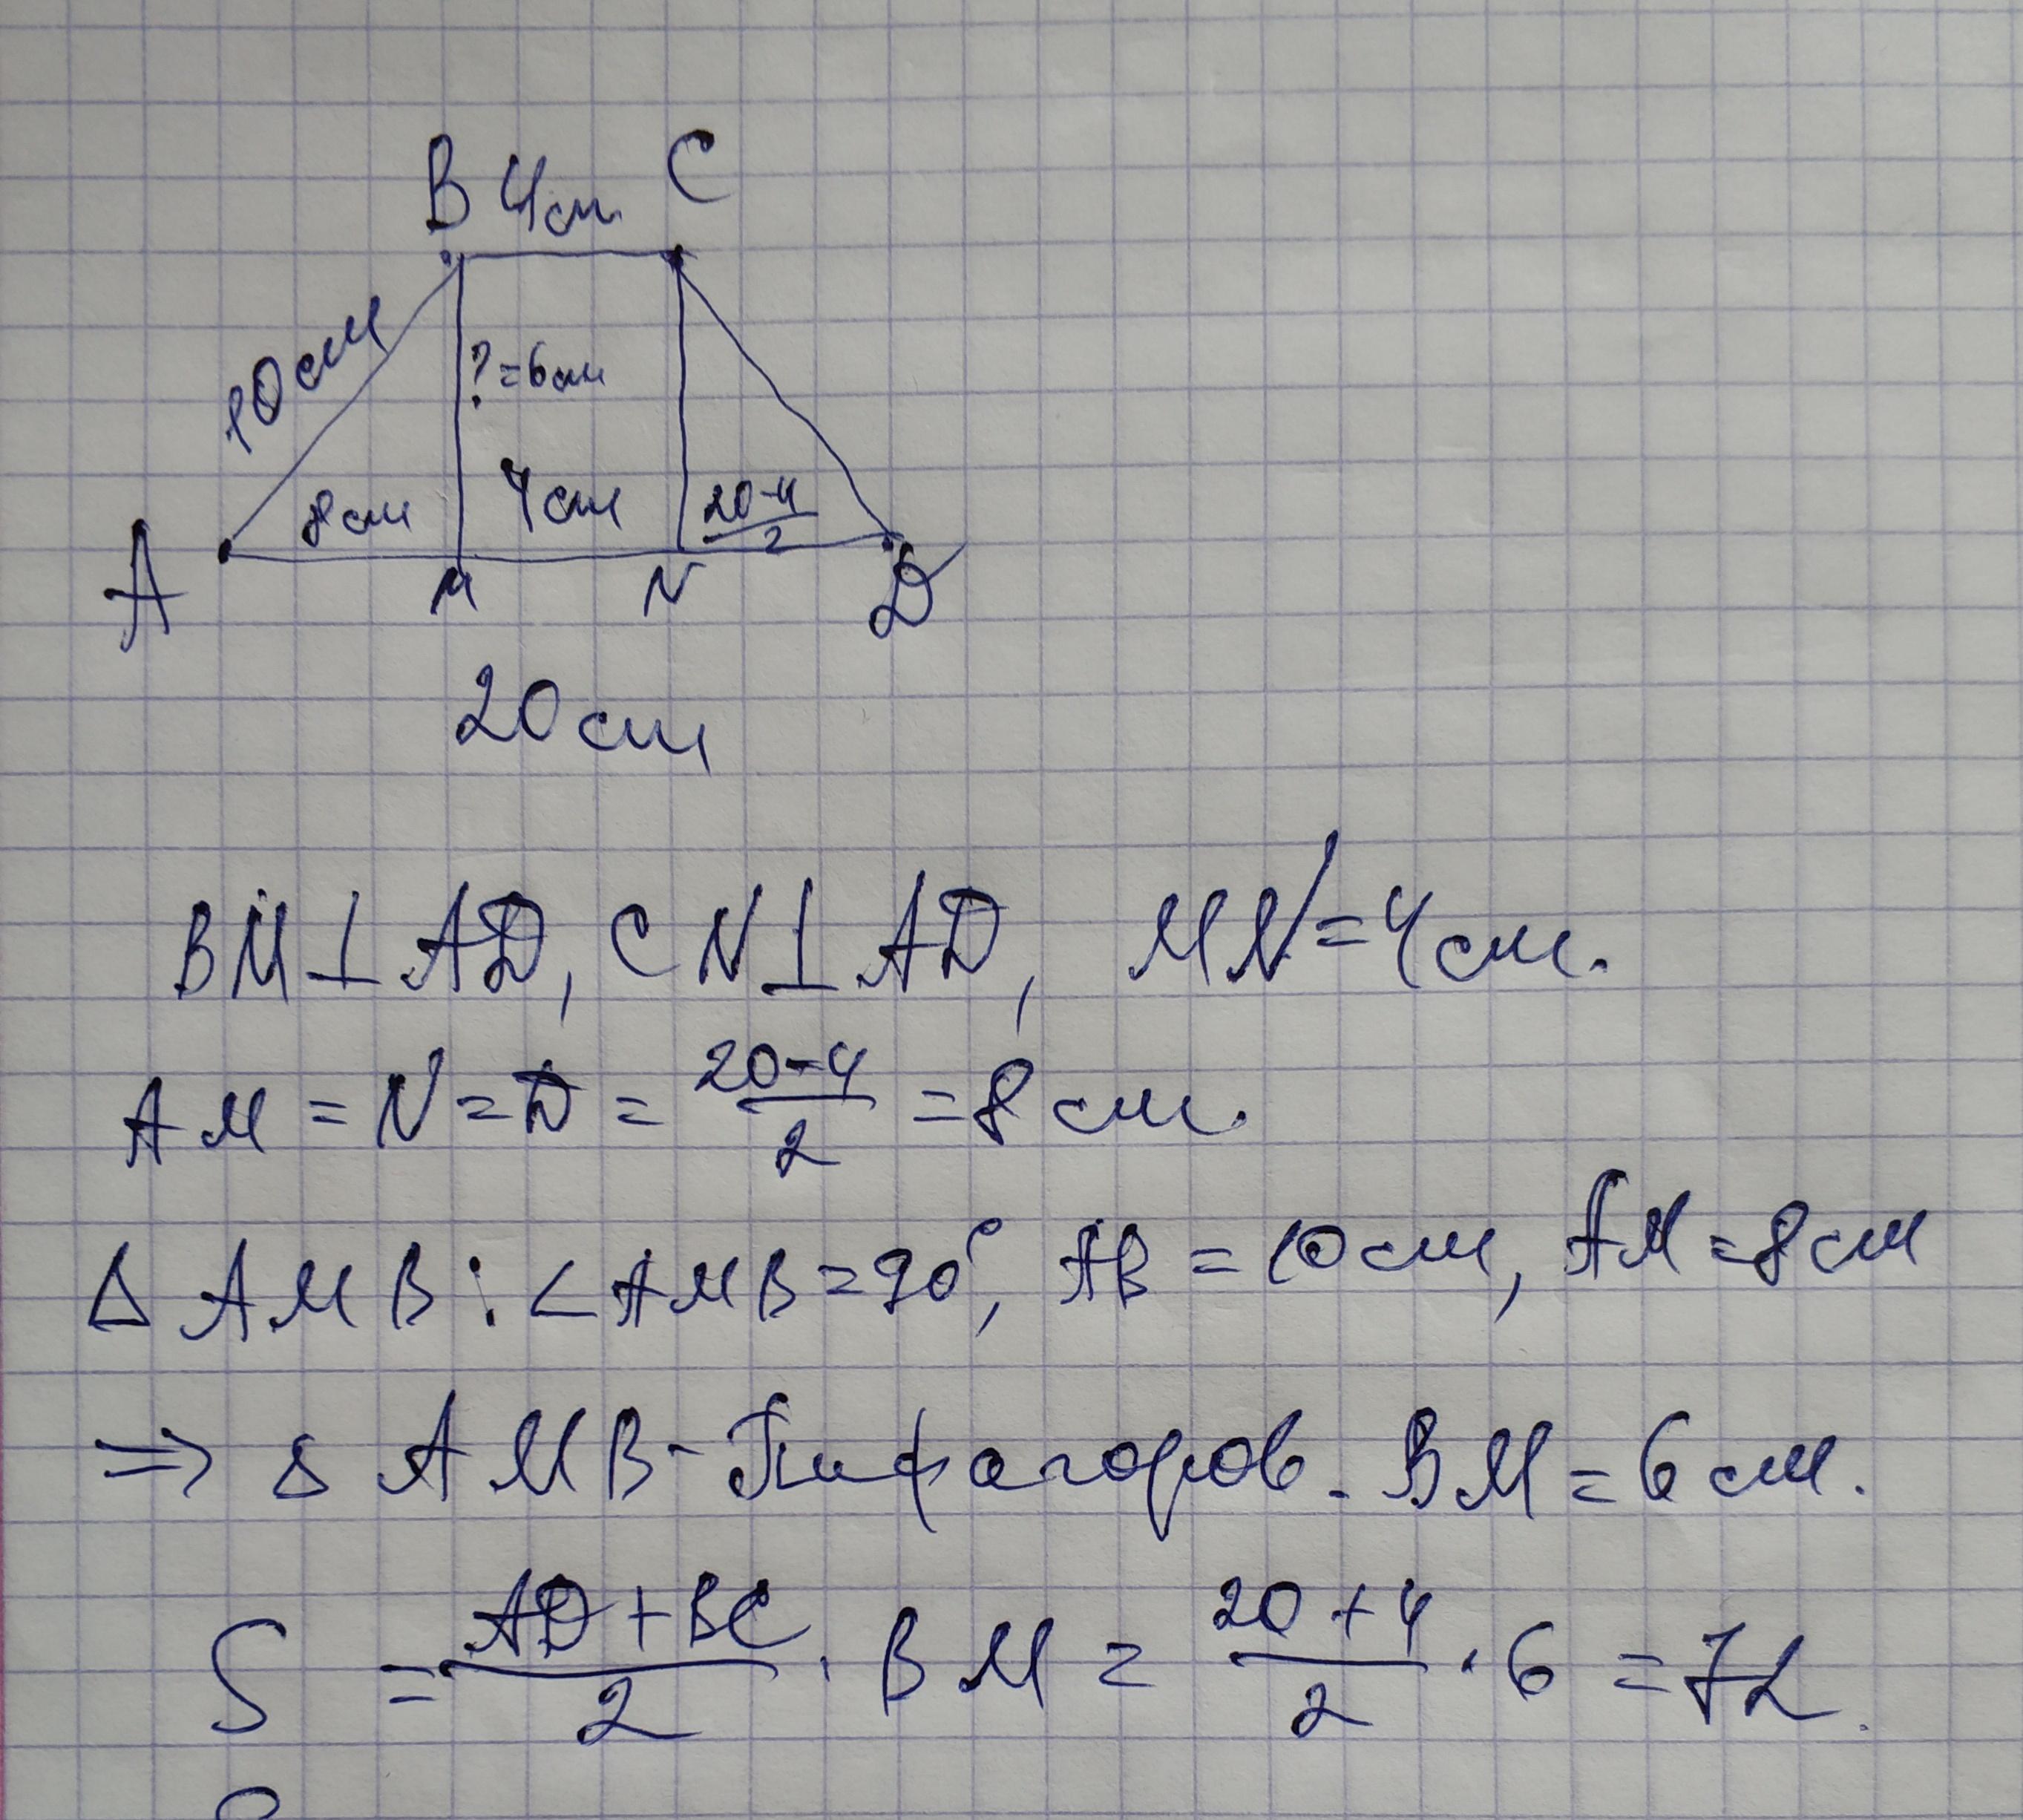 B 4см C
10см
?=6см
8см 4см 20-4/2
A M N D
20см
BM⊥AD, CN⊥AD, MN=4см.
AM=N=D=20-4/2=8см.
Δ AMB: ∠AMB=90°, AB=10см, AM=8см
⇒ Δ AMB-Пифагоров. BM=6см.
S=AD+BC/2·BM=20+4/2·6=72.